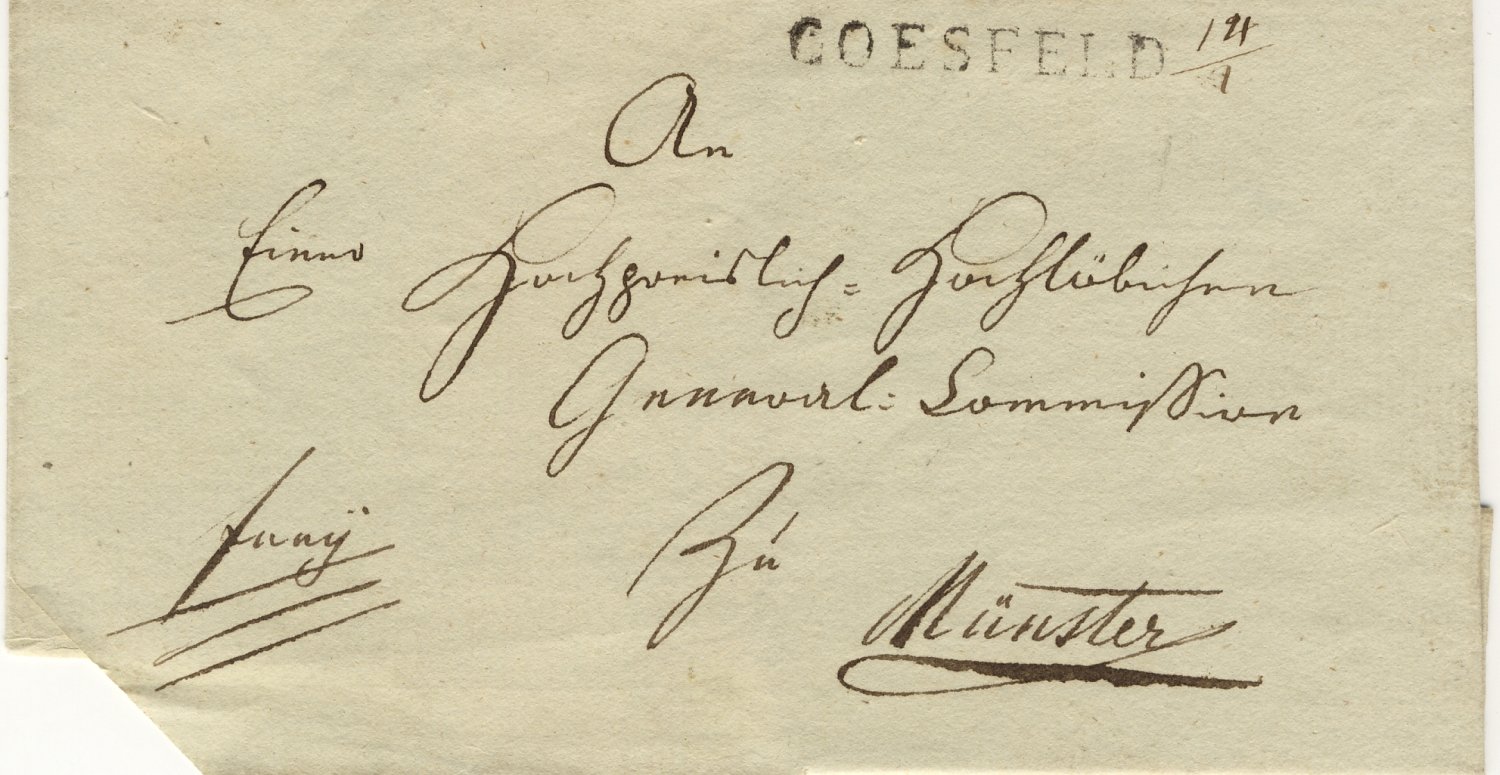 COESFELD 14/9
An
Einer Hochpreislich= Hochlöblichen
General= Commission
Zu
Münster